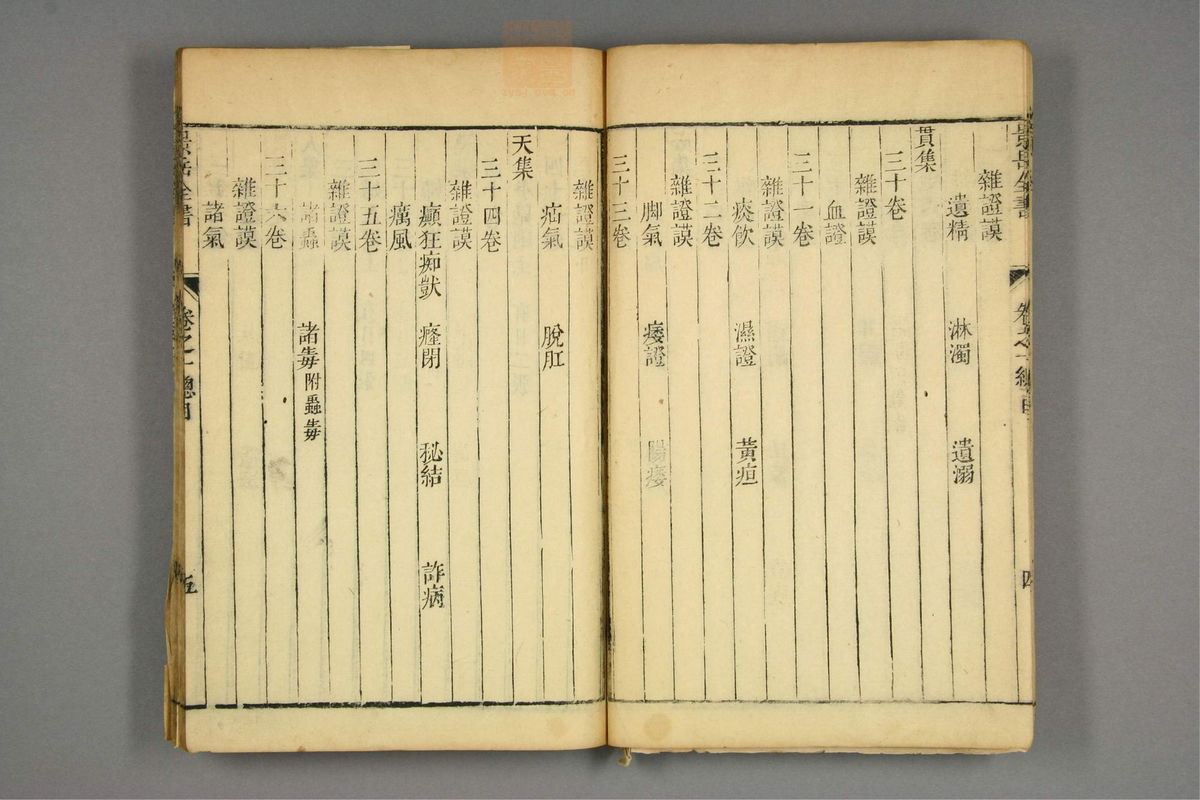 雜證謨
遺精 淋濁 遺溺
貫集
三十卷
雜證謨
血證
三十一卷
雜證謨
痰飲 濕證 黃疸
三十二卷
雜證謨
脚氣 痿證 陽痿
三十三卷
雜證謨
疝氣 脫肛
天集
三十四卷
雜證謨
癲狂痴獃 癃閉 秘結 詐病
癘風
三十五卷
雜證謨
諸蟲 諸毒附蠱毒
三十六卷
雜證謨
諸氣
景岳全書 卷之一總目 五